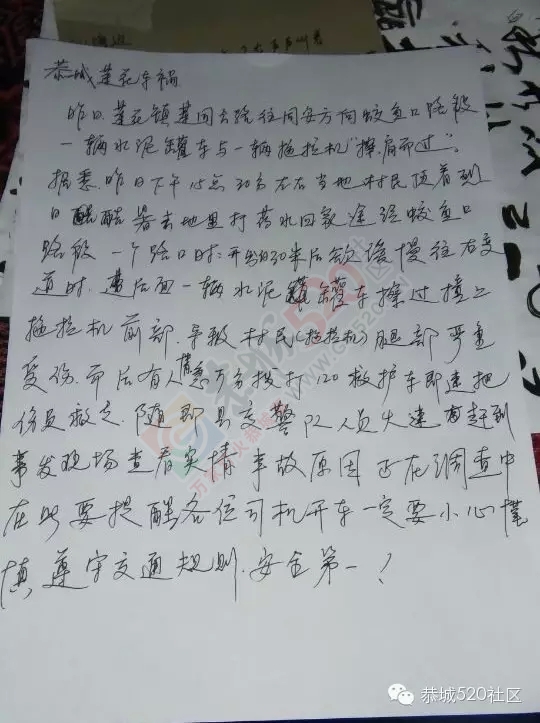 恭城莲花车祸
昨日莲花镇莲同去路往同安方向蛟鱼口路段
一辆水泥罐车与一辆拖拉机"擦肩而过"。
据悉昨日下午15点30分左右当地村民顶着烈
日酷暑去地里打药水回家途经蛟鱼口
路段一个路口时:开约30米后欲缓慢往右变
道时.后面一辆水泥罐车擦过撞上
拖拉机前部.导致村民(拖拉机)腿部严重
受伤.而后有人情急万分拨打120救护车即速把
伤员救走.随即县交警队人员火速赶到
事发现场查看实情事故原因正在调查中
在此要提醒各位司机开车一定要小心谨
慎遵守交通规则.安全第一!
恭城520社区